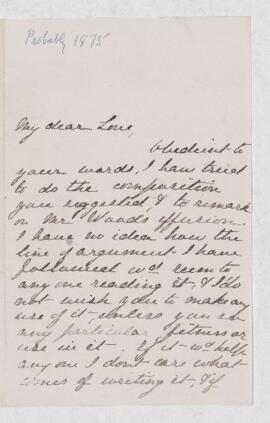 Probably 1875
My dear Love,
Obedient to
your words, I have tried
to do the composition
you suggested, & to remark
on Mr Wood's effusion.
I have no idea how the
line of argument I have
followed wd. seem to
anyone reading it, & I do
not wish you to make any
use of it, unless you see
any particular fitness or
use in it. If it wd. help
anyone I dont care what
comes of writing it, & if